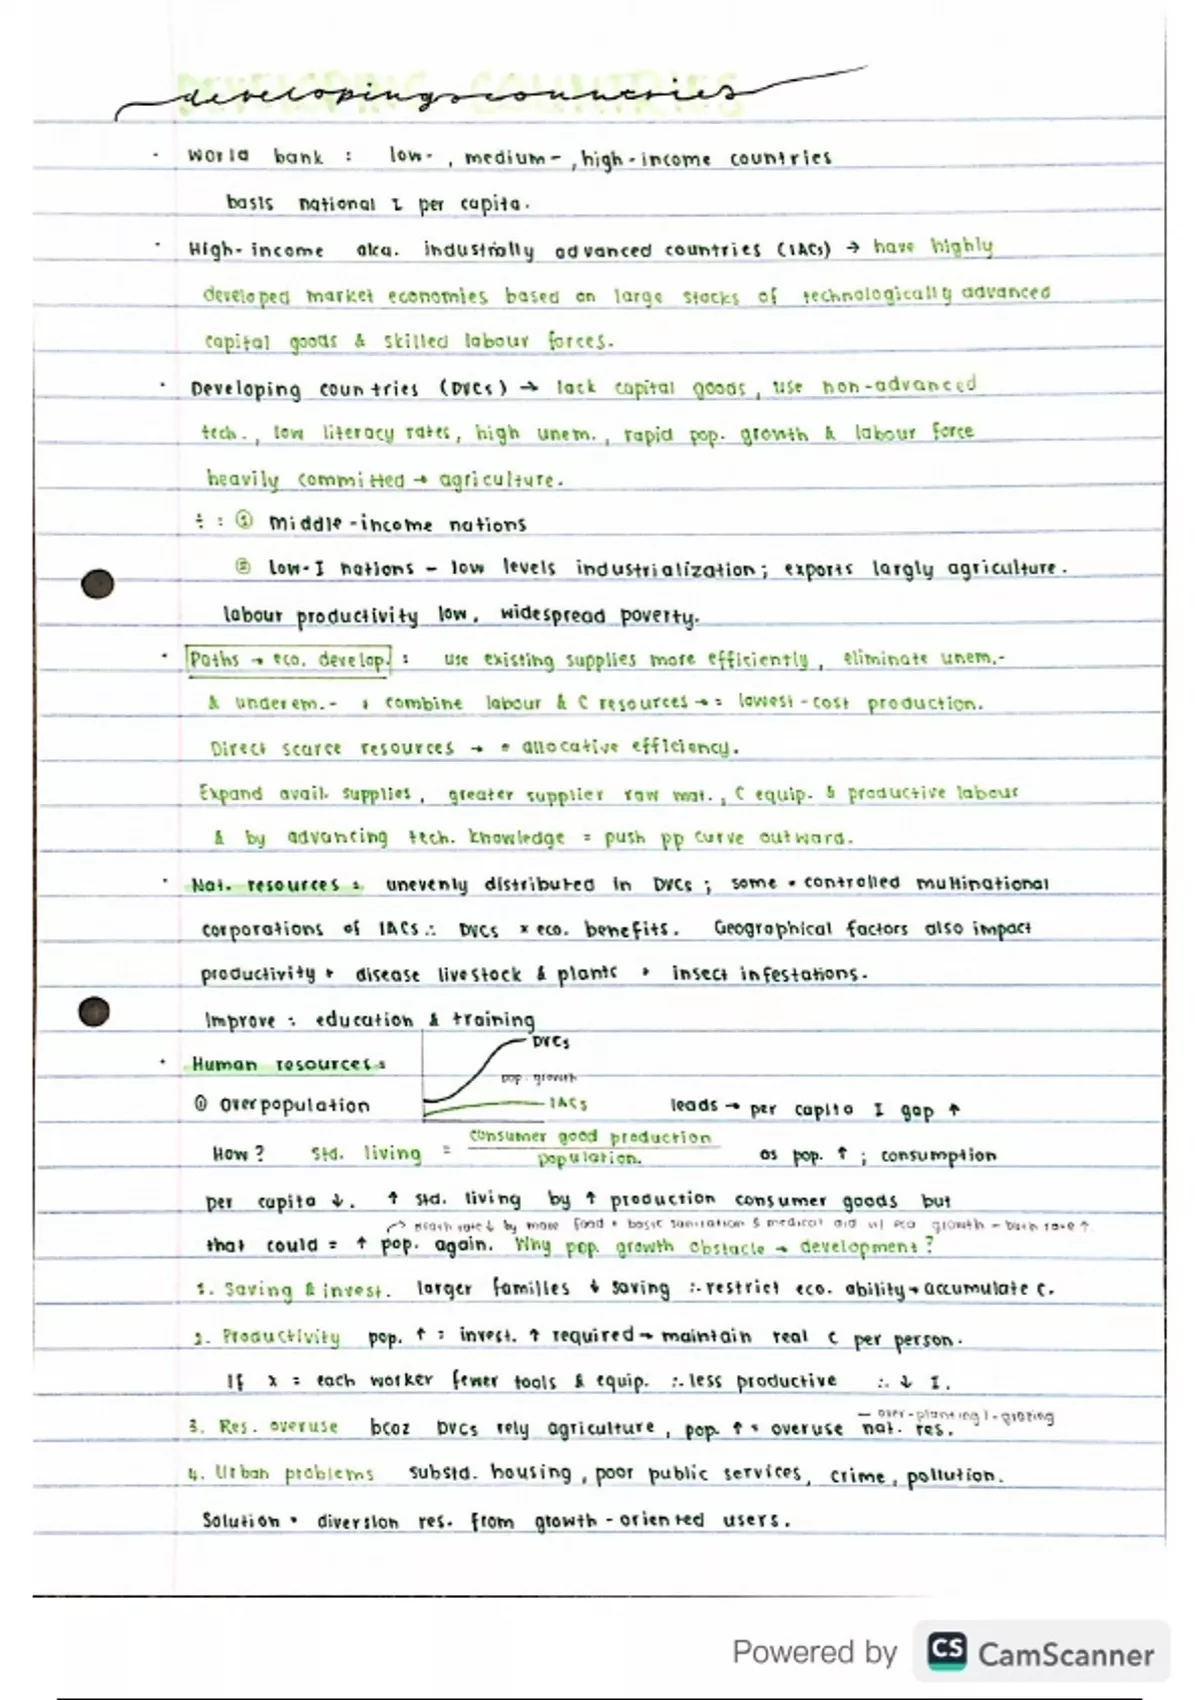 DEVELOPING COUNTRIES
developing countries
· World bank : low- , medium- , high-income countries
basis national I per capita.
· High-income aka. industrially advanced countries (IACs) → have highly
developed market economies based on large stocks of technologically advanced
capital goods & skilled labour forces.
· Developing countries (DVCs) → lack capital goods, use non-advanced
tech., low literacy rates, high unem., rapid pop. growth & labour force
heavily committed → agriculture.
÷ : ① Middle-income nations
② Low-I nations - low levels industrialization; exports largly agriculture.
labour productivity low, widespread poverty.
· Paths → eco. develop. : use existing supplies more efficiently, eliminate unem.-
& underem.- ; combine labour & C resources → = lowest-cost production.
Direct scarce resources → = allocative efficiency.
Expand avail. supplies, greater supplier raw mat., C equip. & productive labour
& by advancing tech. knowledge = push pp curve outward.
· Nat. resources : unevenly distributed in DVCs ; some • controlled multinational
corporations of IACs ∴ DVCs × eco. benefits. Geographical factors also impact
productivity + disease livestock & plants + insect infestations.
Improve : education & training
DVCs
· Human resources :
pop. growth
① Overpopulation
IACs
leads → per capita I gap ↑
How? Std. living = consumer good production
population.
as pop. ↑ ; consumption
per capita ↓. ↑ std. living by ↑ production consumer goods but
↱ death rate ↓ by more food + basic sanitation & medical aid w/ eco growth - birth rate ↑
that could = ↑ pop. again. Why pop. growth obstacle → development?
1. Saving & invest. larger families ↓ saving ∴ restrict eco. ability → accumulate C.
2. Productivity pop. ↑ : invest. ↑ required → maintain real C per person.
If x = each worker fewer tools & equip. ∴ less productive ∴ ↓ I.
— over-planting/-grazing
3. Res. overuse bcoz DVCs rely agriculture, pop. ↑ = overuse nat. res.
4. Urban problems substd. housing, poor public services, crime, pollution.
Solution • diversion res. from growth-oriented users.
Powered by CS CamScanner